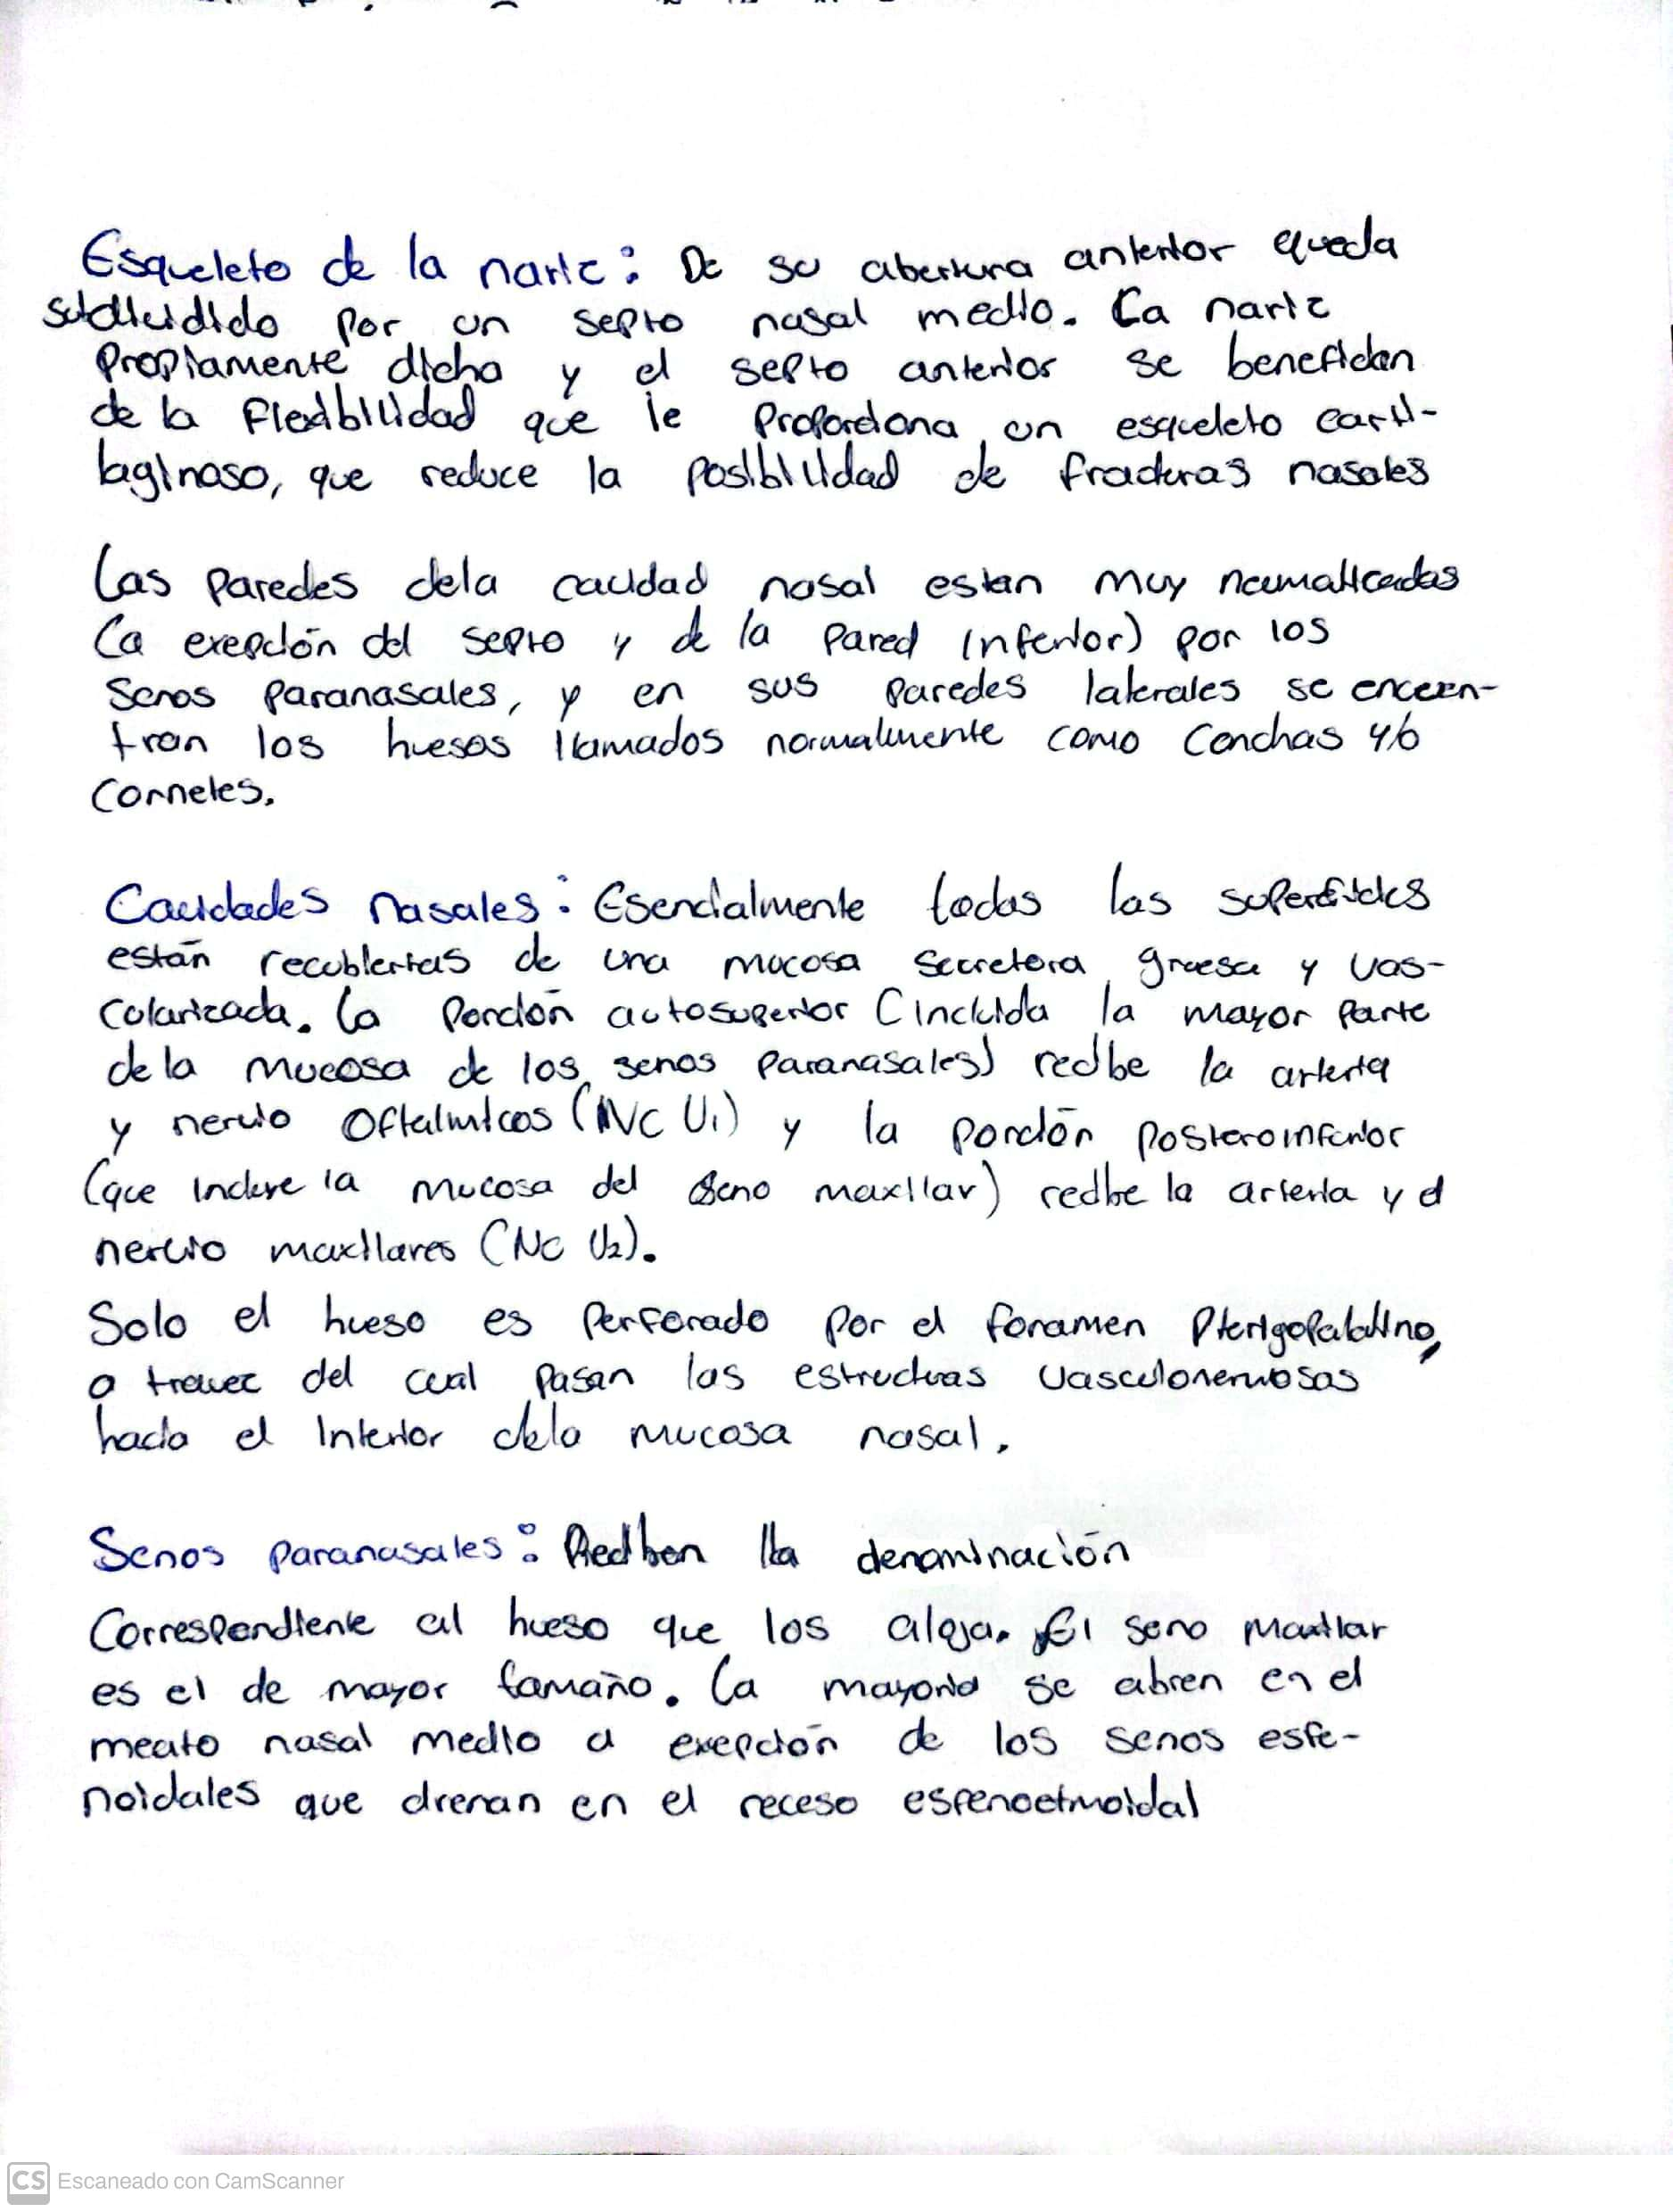 Esqueleto de la nariz: De su abertura anterior queda
subdividido por un septo nasal medio. La nariz
propiamente dicha y el septo anterior se benefician
de la flexibilidad que le proporciona un esqueleto carti-
laginoso, que reduce la posibilidad de fracturas nasales
Las paredes dela cavidad nasal estan muy neumatizadas
(a exepción del septo y de la pared inferior) por los
senos paranasales, y en sus paredes laterales se encuen-
tran los huesos llamados normalmente como conchas y/o
cornetes.
Cavidades nasales: Esencialmente todas las superficies
están recubiertas de una mucosa secretora gruesa y vas-
cularizada. La porción autosuperior (incluida la mayor parte
de la mucosa de los senos paranasales) recibe la arteria
y nervio oftalmicos (NC V1) y la porción posteroinferior
(que incluye la mucosa del seno maxilar) recibe la arteria y el
nervio maxilares (NC V2).
Solo el hueso es perforado por el foramen pterigopalatino,
a travez del cual pasan las estructuras vasculonerviosas
hacia el interior dela mucosa nasal.
Senos paranasales: Reciben la denominación
correspondiente al hueso que los aloja. El seno maxilar
es el de mayor tamaño. La mayoria se abren en el
meato nasal medio a exepción de los senos esfe-
noidales que drenan en el receso esfenoetmoidal
CS Escaneado con CamScanner